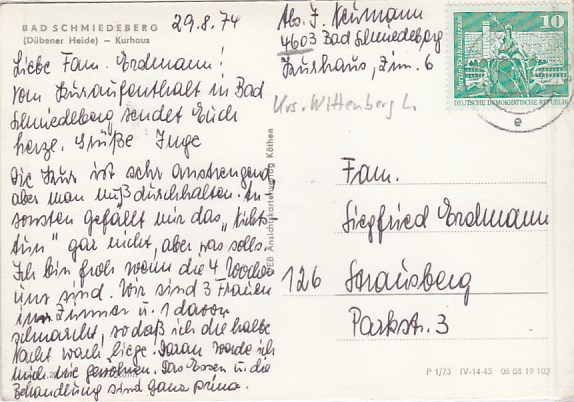 BAD SCHMIEDEBERG
(Dübener Heide) – Kurhaus
29.8.74
Liebe Fam. Erdmann!
Vom Kuraufenthalt in Bad
Schmiedeberg sendet Euch
herzl. Grüße Inge
Die Kur ist sehr anstrengend,
aber man muß durchhalten. An-
sonsten gefällt mir das „Nichts-
tun" gar nicht, aber was solls.
Ich bin froh wenn die 4 Wochen
um sind. Wir sind 3 Frauen
im Zimmer u. 1 davon
schnarcht, so daß ich die halbe
Nacht wach liege. Daran werde ich
mich nie gewöhnen. Das Essen u. die
Behandlung sind ganz prima.
VEB Ansichtskartenverlag Köthen
Abs. I. Neumann
4603 Bad Schmiedeberg
Kurhaus, Zim. 6
Krs. Wittenberg L.
10
DEUTSCHE DEMOKRATISCHE REPUBLIK
e
Fam.
Siegfried Erdmann
126 Strausberg
Parkstr. 3
P 1/73 IV-14-45 06 08 19 102